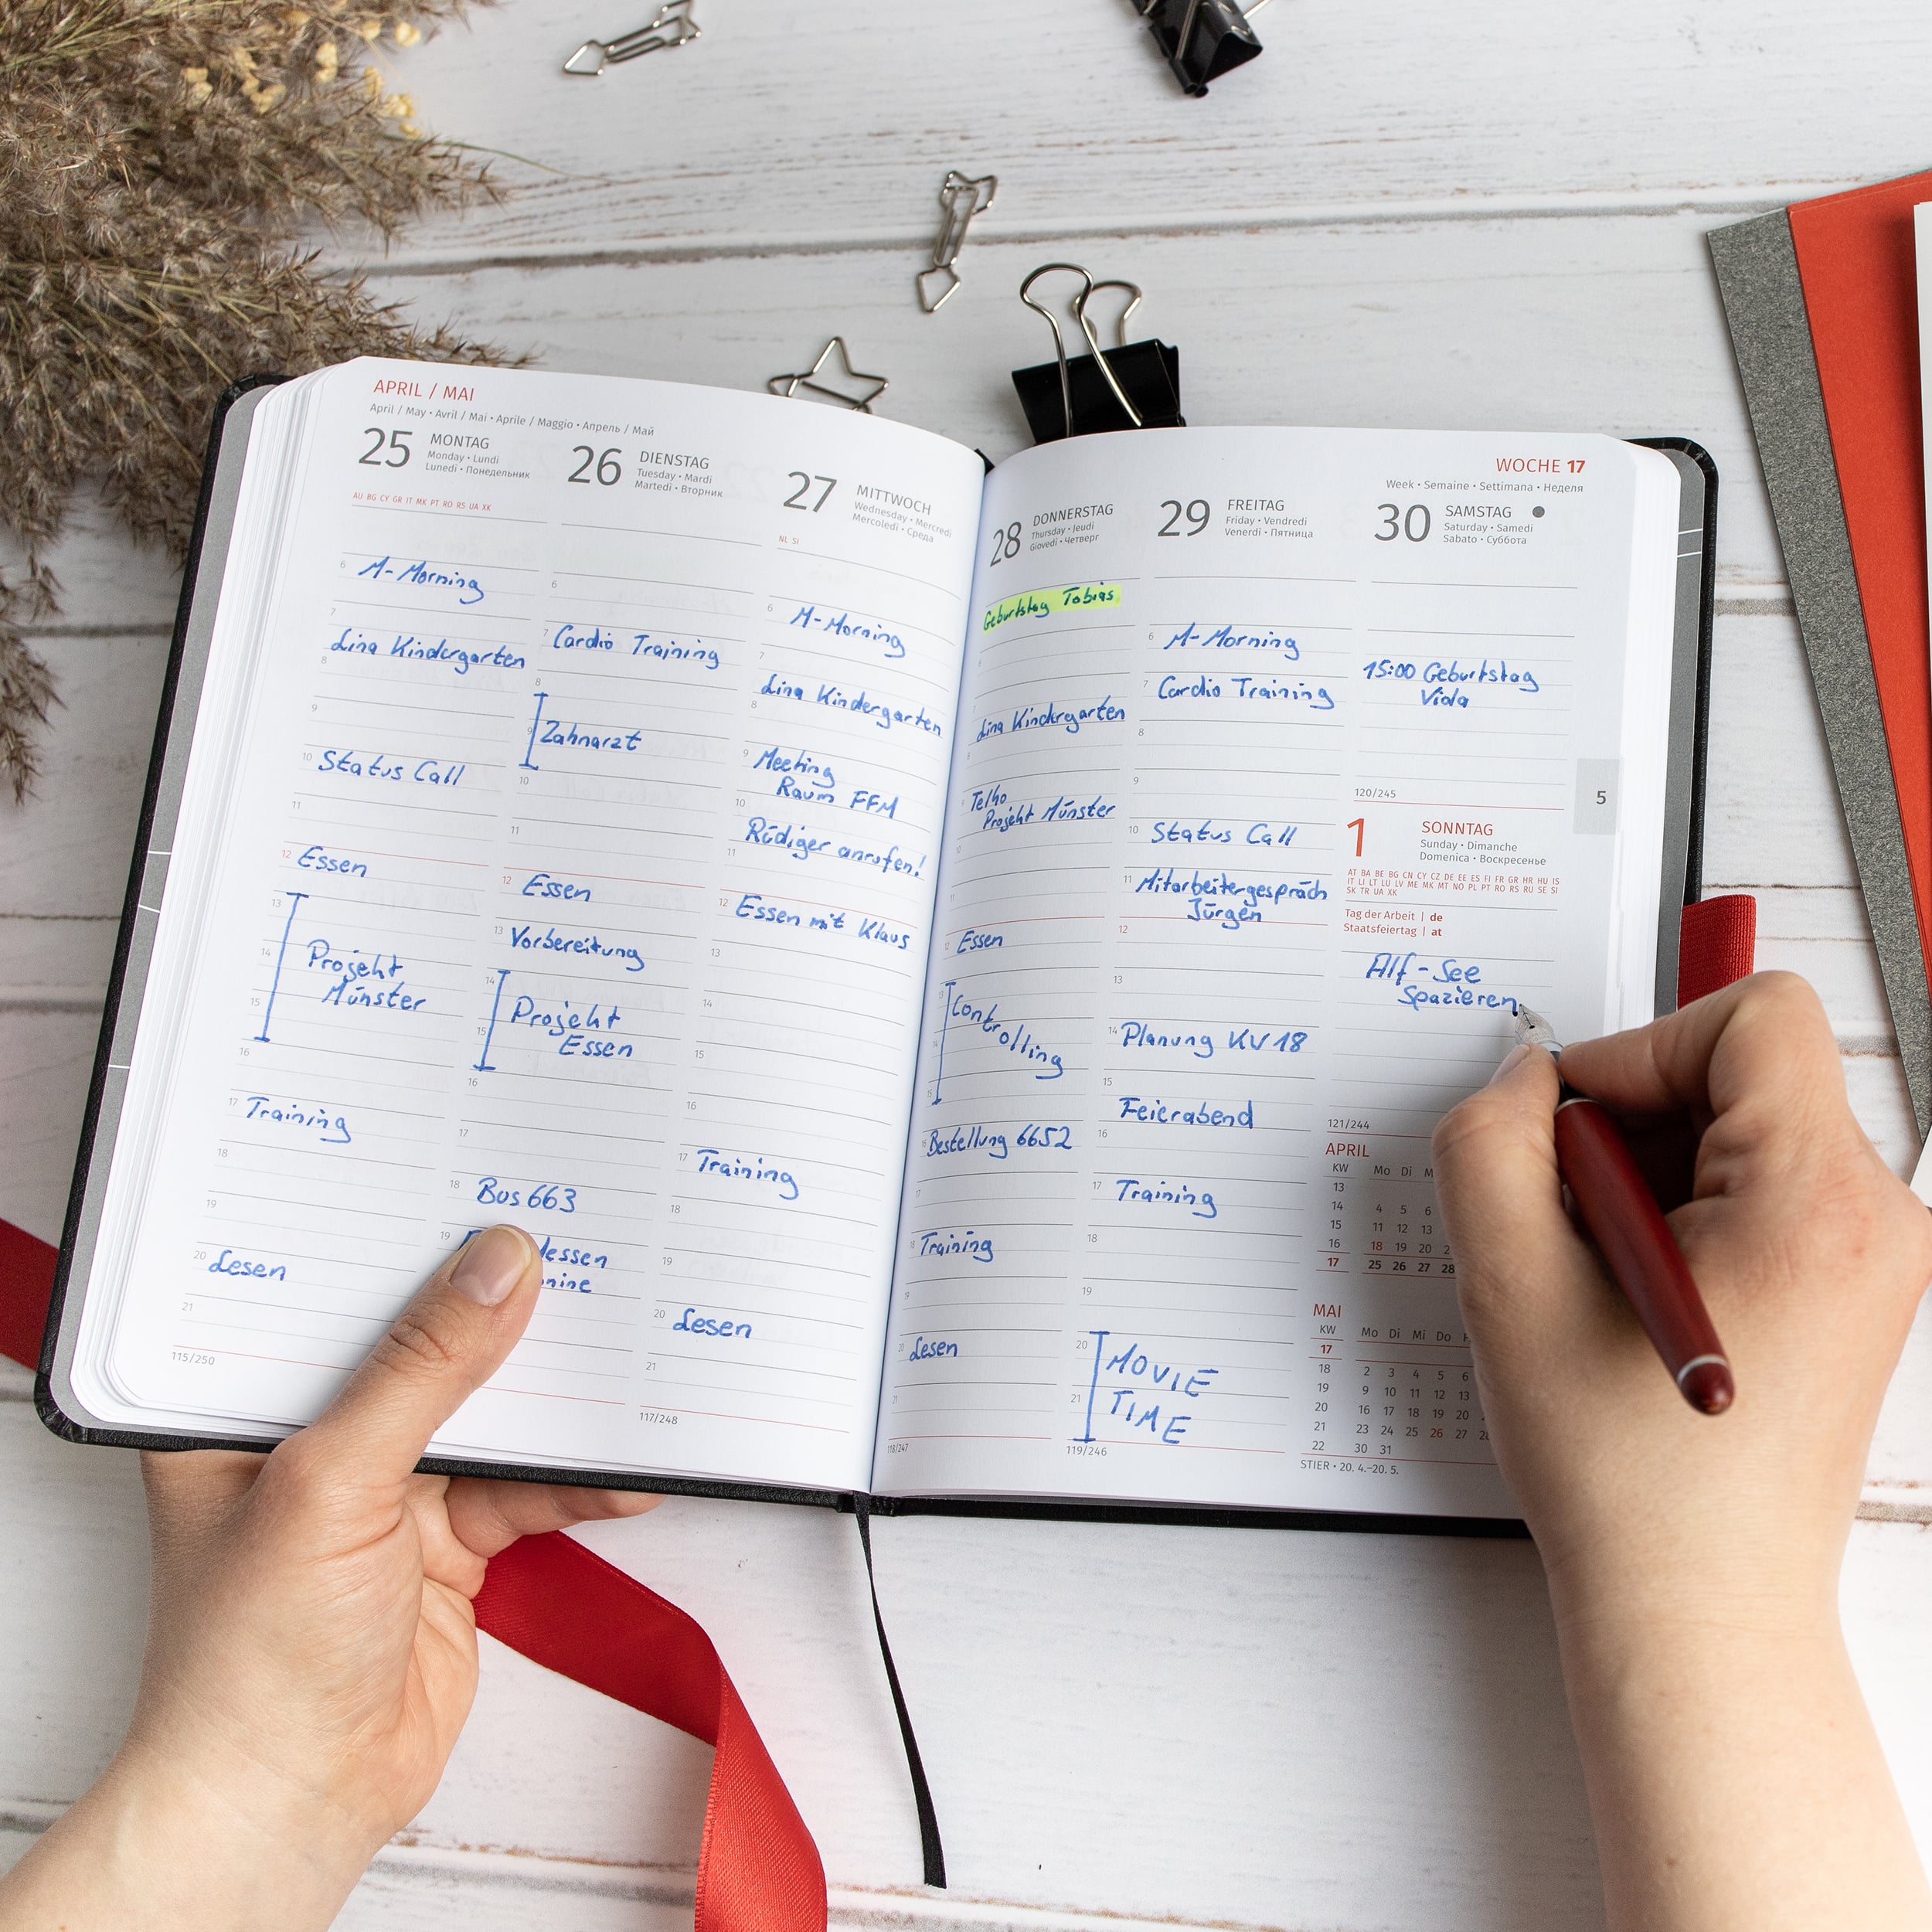 APRIL / MAI
April / May • Avril / Mai • Aprile / Maggio • Апрель / Май
25 MONTAG
Monday • Lundi
Lunedì • Понедельник
AU BG CY GR IT MK PT RO RS UA XK
6 M-Morning
7
Lina Kindergarten
8
9
10 Status Call
11
12 Essen
13
14 Projekt
Münster
15
16
17 Training
18
19
20 Lesen
21
115/250
26 DIENSTAG
Tuesday • Mardi
Martedì • Вторник
6
7 Cardio Training
8
9 Zahnarzt
10
11
12 Essen
13 Vorbereitung
14
Projekt
15 Essen
16
17
18 Bus 663
19
27 MITTWOCH
Wednesday • Mercredi
Mercoledì • Среда
NL SI
6 M-Morning
7
Lina Kindergarten
8
9 Meeting
Raum FFM
10
Rüdiger anrufen!
11
12 Essen mit Klaus
13
14
15
16
17 Training
18
19
20 Lesen
21
117/248
WOCHE 17
Week • Semaine • Settimana • Неделя
28 DONNERSTAG
Thursday • Jeudi
Giovedì • Четверг
Geburtstag Tobias
6
7
Lina Kindergarten
8
9 Telko
Projekt Münster
10
11
12 Essen
13 Controlling
14
15
16 Bestellung 6652
17
18 Training
19
20 Lesen
21
118/247
29 FREITAG
Friday • Vendredi
Venerdì • Пятница
6 M-Morning
7 Cardio Training
8
9
10 Status Call
11 Mitarbeitergespräch
Jürgen
12
13
14 Planung KV 18
15
Feierabend
16
17 Training
18
19
20 MOVIE
21 TIME
119/246
30 SAMSTAG
Saturday • Samedi
Sabato • Суббота
15:00 Geburtstag
Viola
120/245
5
1 SONNTAG
Sunday • Dimanche
Domenica • Воскресенье
AT BA BE BG CN CY CZ DE EE ES FI FR GR HR HU IS
IT LI LT LU LV ME MK MT NO PL PT RO RS RU SE SI
SK TR UA XK
Tag der Arbeit | de
Staatsfeiertag | at
Alf-See
Spazieren
121/244
APRIL
KW Mo Di
13
14 4 5 6
15 11 12 13
16 18 19 20
17 25 26 27 28
MAI
KW Mo Di Mi Do
17
18 2 3 4 5 6
19 9 10 11 12 13
20 16 17 18 19 20
21 23 24 25 26 27
22 30 31
STIER • 20. 4.–20. 5.